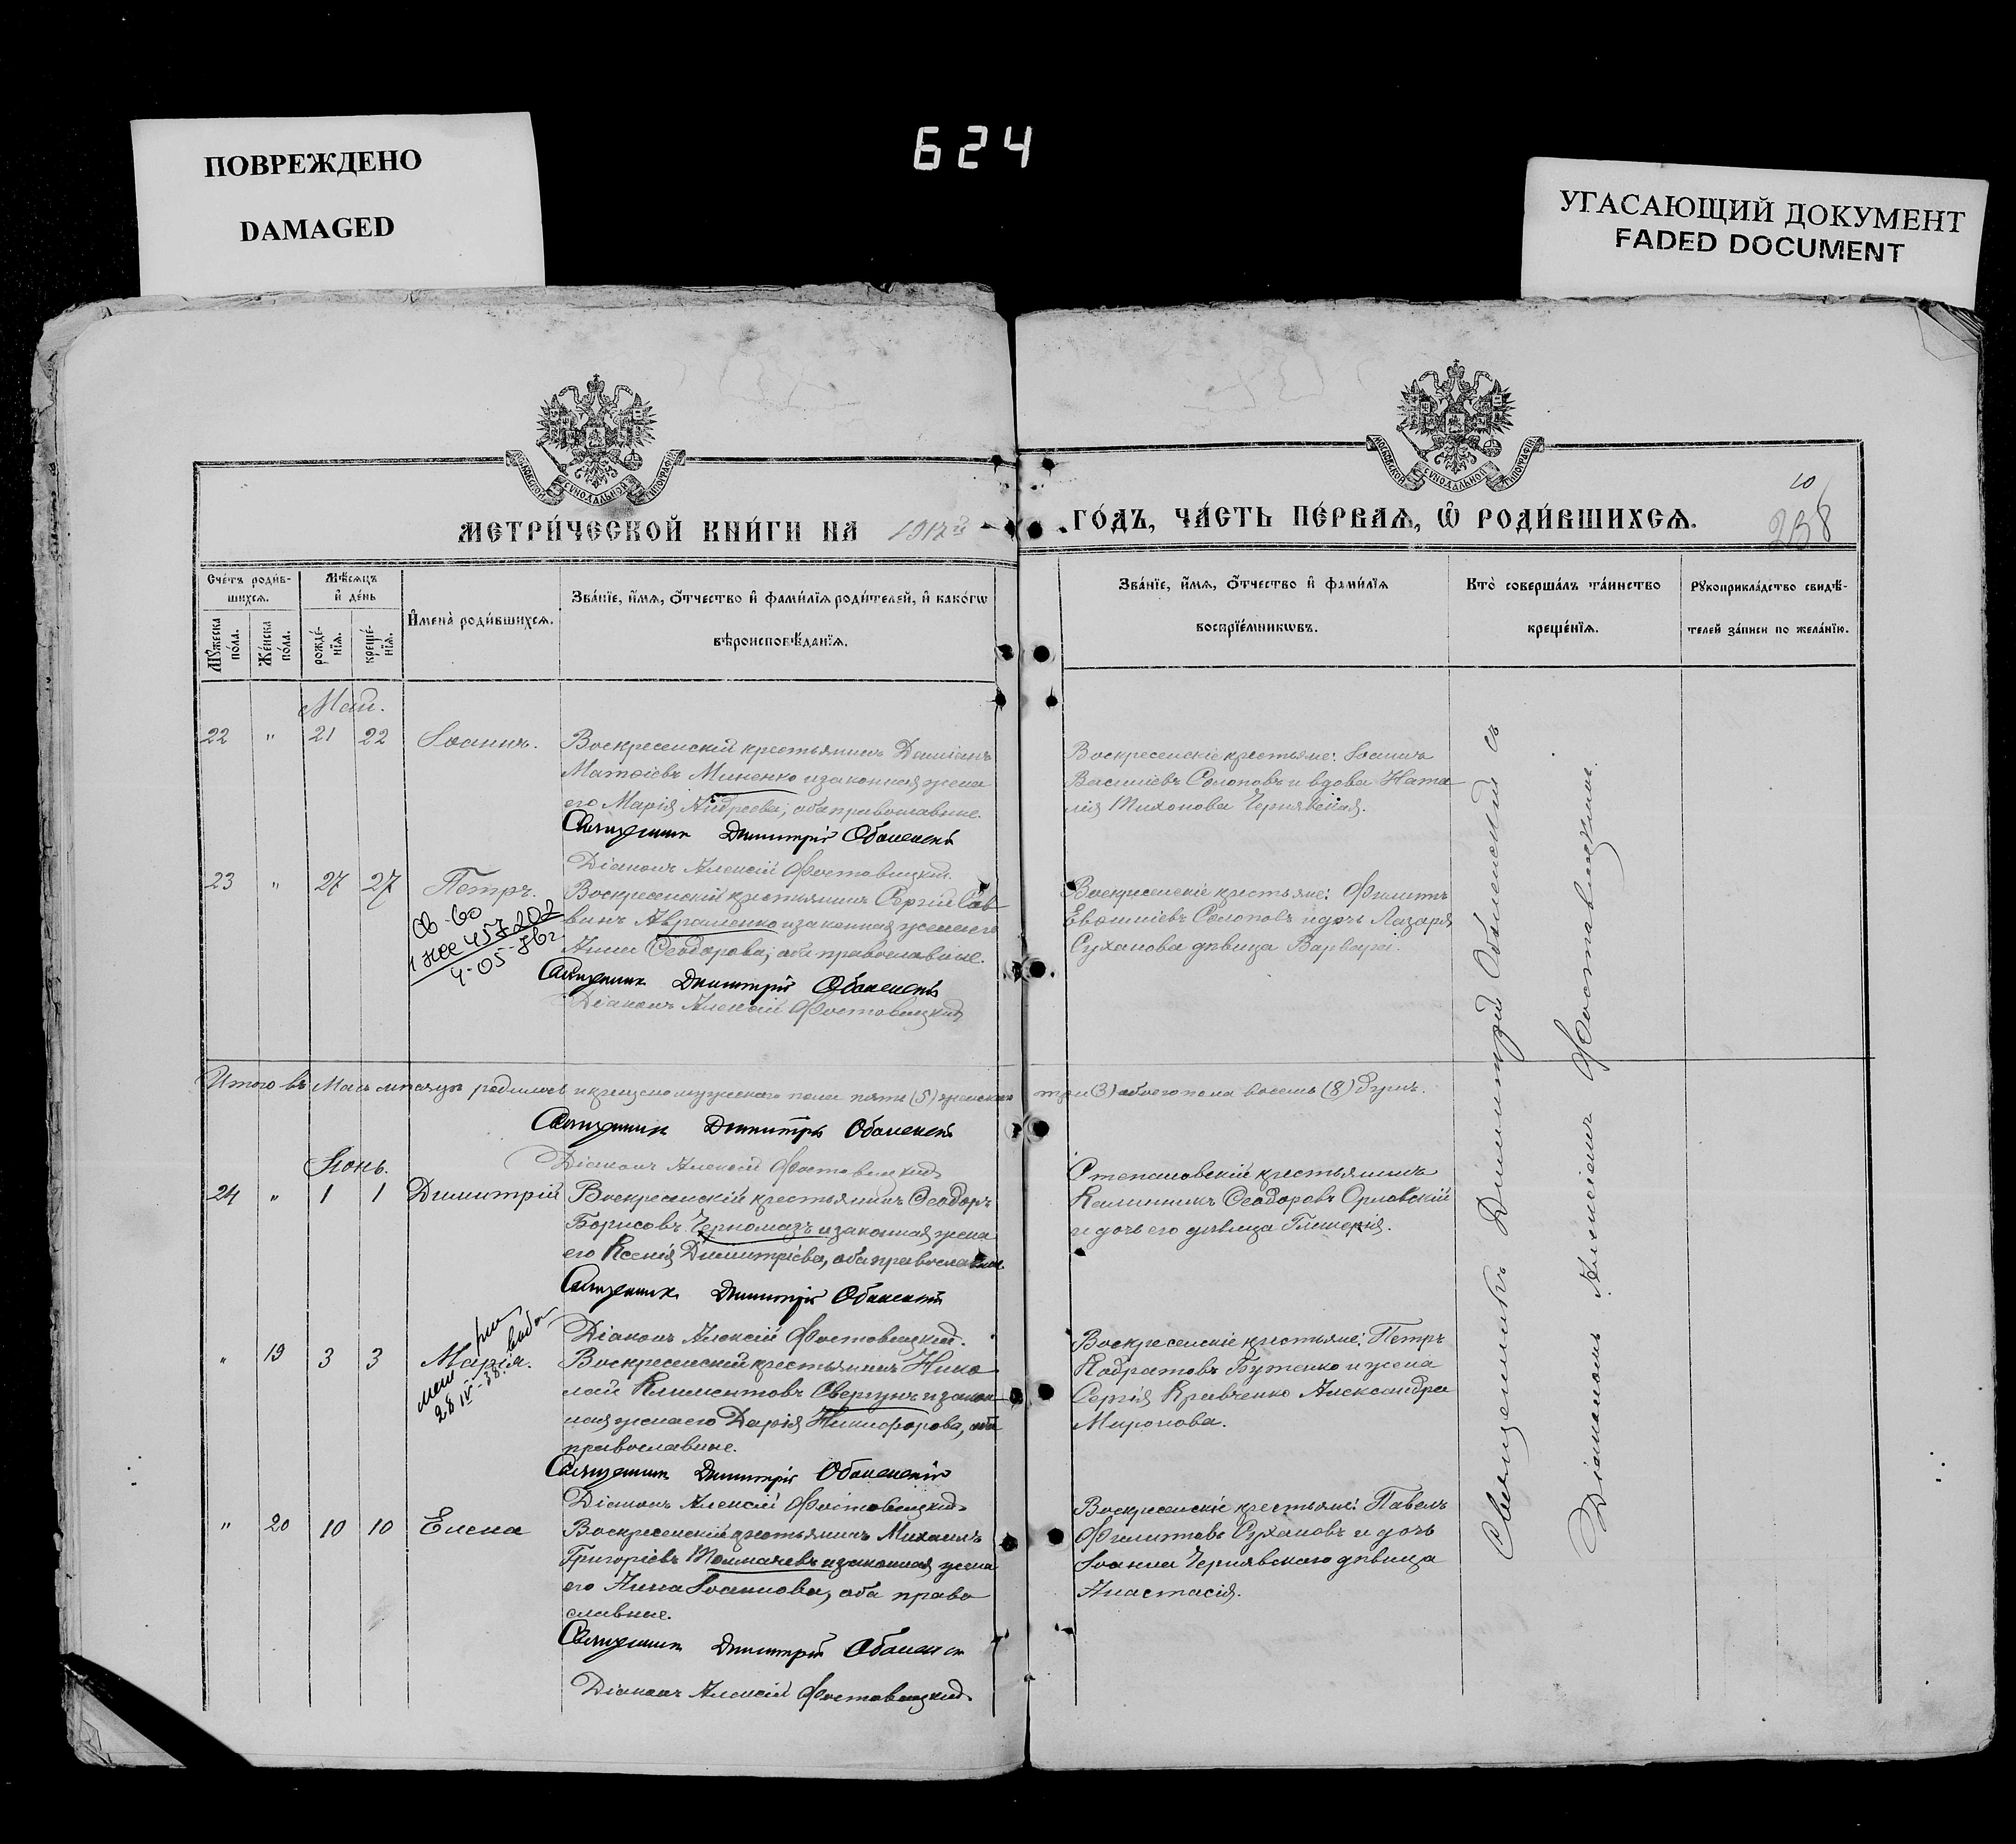 ПОВРЕЖДЕНО
DAMAGED
624
УГАСАЮЩИЙ ДОКУМЕНТ
FADED DOCUMENT
МОСКОВСКОЙ СѴНОДАЛЬНОЙ ТИПОГРАФІИ
МОСКОВСКОЙ СѴНОДАЛЬНОЙ ТИПОГРАФІИ
МЕТРИ́ЧЕСКОЙ КНИ́ГИ НА 1917й ГО́ДЪ, ЧА́СТЬ ПЕ́РВАѦ, Ѽ РОДИ́ВШИХСѦ.
10
238
Сче́тъ роди́в-
шихсѧ.
Мѣ́сѧцъ
и҆ де́нь
И҆мена̀ роди́вшихсѧ.
Зва́нїе, и҆́мѧ, ѻ҆́тчество и҆ фами́лїѧ роди́телей, и҆ како́гѡ
вѣроисповѣ́данїѧ.
Мꙋ́жеска
по́ла.
Же́нска
по́ла.
рожде́-
нїѧ.
креще́-
нїѧ.
Зва́нїе, и҆́мѧ, ѻ҆́тчество и҆ фами́лїѧ
воспрїе́мникѡвъ.
Кто̀ соверша́лъ та́инство
креще́нїѧ.
Рꙋкоприкла́дство свидѣ́-
телей за́писи по жела́нїю.
Май.
22 " 21 22 Іоаннъ.
Воскресенскій крестьянинъ Даміанъ
Матѳіевъ Миненко и законная жена
его Марія Андреева, оба православные.
Священникъ Димитрій Оболенскій
Діаконъ Алексій Фостовицкій.
Воскресенскіе крестьяне: Іоаннъ
Василіевъ Солоповъ и вдова Ната
лія Тихонова Чернявская.
23 " 27 27 Петръ.
Св-во
1 ЖЕ 457202
4-05-76г.
Воскресенскій крестьянинъ Сергій Сав
винъ Авраменко и законная жена его
Анна Ѳеодорова, оба православные.
Священникъ Димитрій Оболенскій
Діаконъ Алексій Фостовицкій
Воскресенскіе крестьяне: Филиппъ
Евѳиміевъ Солоповъ и дочь Лазаря
Суханова дѣвица Варвара.
Итого въ Маѣ мѣсяцѣ родилось и крещено мужескаго пола пять (5) женскаго три (3) обоего пола восемь (8) душъ.
Священникъ Димитрій Оболенскій
Діаконъ Алексій Фостовицкій
Іюнь.
24 " 1 1 Димитрій
Воскресенскій крестьянинъ Ѳеодоръ
Борисовъ Черномазъ и законная жена
его Ксенія Димитріева, оба православные.
Священникъ Димитрій Оболенскій
Діаконъ Алексій Фостовицкій.
Степановскій крестьянинъ
Каллиникъ Ѳеодоровъ Орловскій
и дочь его дѣвица Гликерія.
" 19 3 3 Марія.
28 IV-38.
Воскресенскій крестьянинъ Нико
лай Климентовъ Свергунъ и закон
ная жена его Дарія Никифорова, оба
православные.
Священникъ Димитрій Оболенскій
Діаконъ Алексій Фостовицкій
Воскресенскіе крестьяне: Петръ
Кодратовъ Бутенко и жена
Сергія Кравченко Александра
Миронова.
" 20 10 10 Елена
Воскресенскій крестьянинъ Михаилъ
Григоріевъ Толмачевъ и законная жена
его Анна Іоаннова, оба право
славные.
Священникъ Димитрій Оболенскій
Діаконъ Алексій Фостовицкій
Воскресенскіе крестьяне: Павелъ
Филипповъ Сухановъ и дочь
Іоанна Чернявскаго дѣвица
Анастасія.
Священникъ Димитрій Оболенскій съ
Діакономъ Алексіемъ Фостовицкимъ.